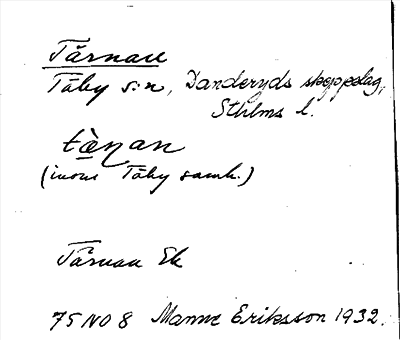 Tärnan
Täby s:n, Danderyds skeppslag,
Sthlms l.
tæ̀ṇan
(inom Täby samh.)
Tärnan Ek
75 NO 8 Manne Eriksson 1932.